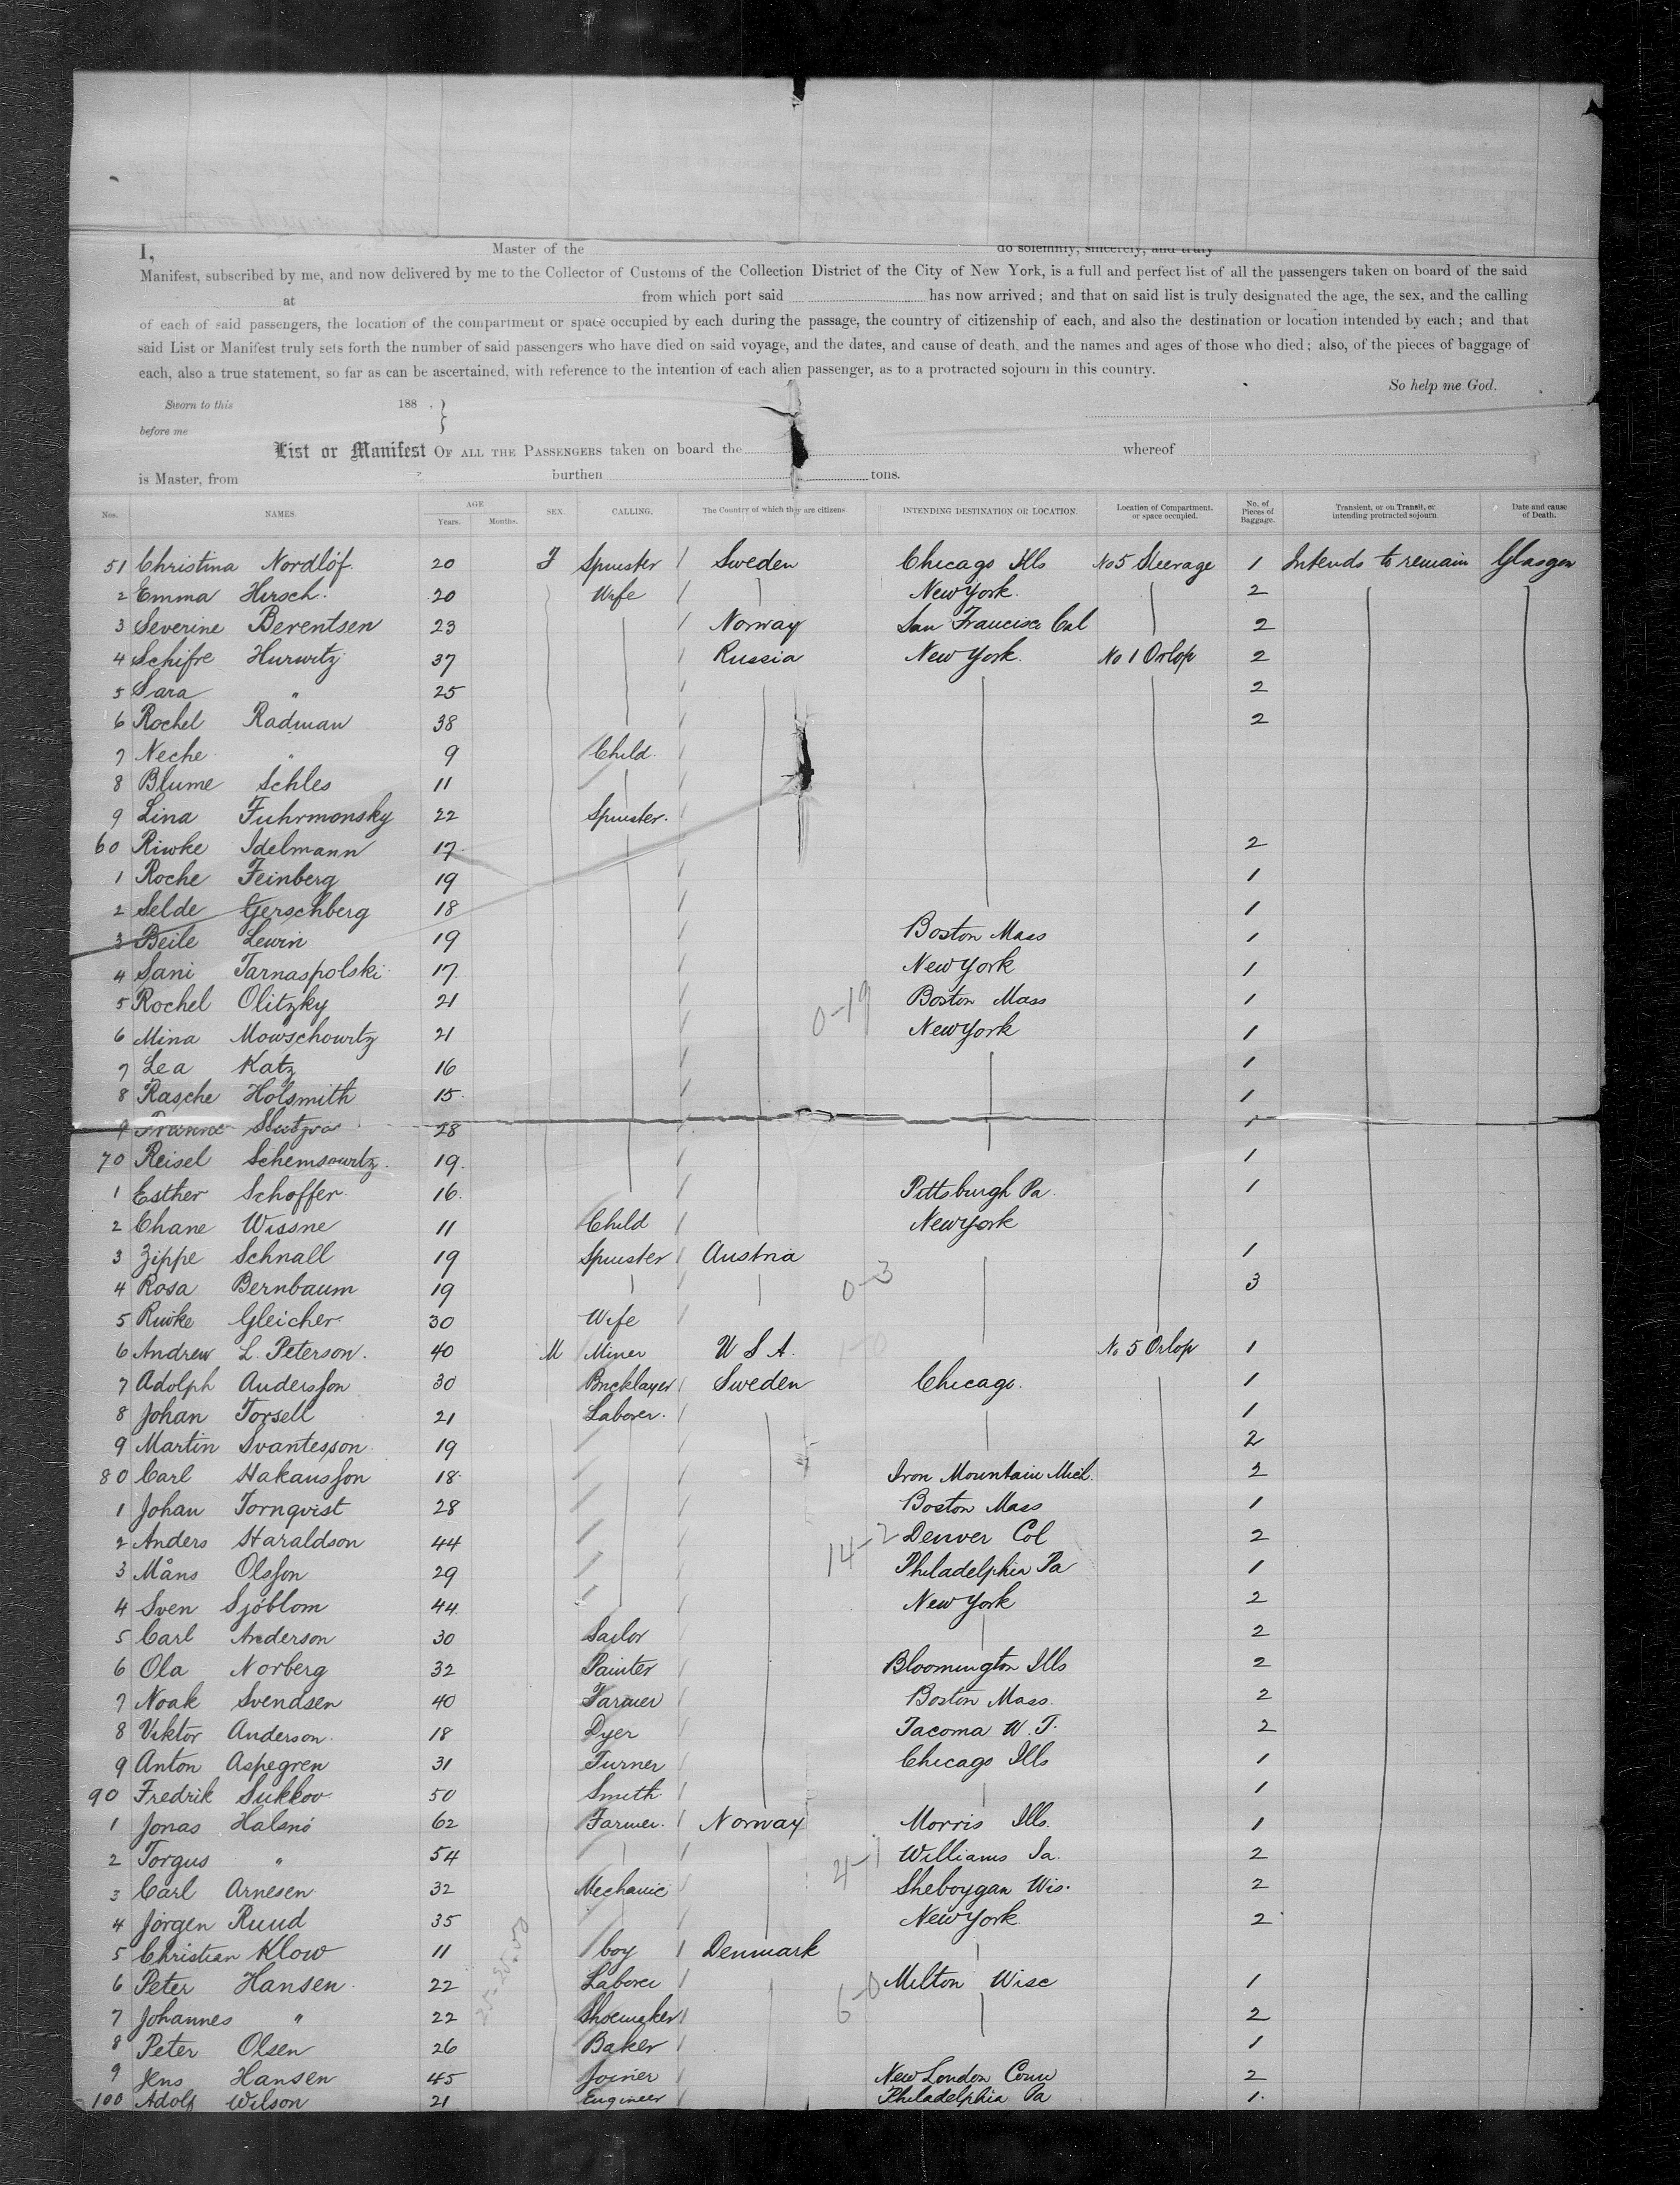 I, Master of the do solemnly, sincerely, and truly
Manifest, subscribed by me, and now delivered by me to the Collector of Customs of the Collection District of the City of New York, is a full and perfect list of all the passengers taken on board of the said
at from which port said has now arrived; and that on said list is truly designated the age, the sex, and the calling
of each of said passengers, the location of the compartment or space occupied by each during the passage, the country of citizenship of each, and also the destination or location intended by each; and that
said List or Manifest truly sets forth the number of said passengers who have died on said voyage, and the dates, and cause of death, and the names and ages of those who died; also, of the pieces of baggage of
each, also a true statement, so far as can be ascertained, with reference to the intention of each alien passenger, as to a protracted sojourn in this country.
So help me God.
Sworn to this 188 . }
before me
List or Manifest OF ALL THE PASSENGERS taken on board the whereof
is Master, from burthen tons.
Nos. NAMES. AGE Years. Months. SEX. CALLING. The Country of which they are citizens. INTENDING DESTINATION OR LOCATION. Location of Compartment, or space occupied. No. of Pieces of Baggage. Transient, or on Transit, or intending protracted sojourn. Date and cause of Death.
51 Christina Nordlöf 20 F Spinster / Sweden Chicago Ills No 5 Steerage 1 Intends to remain Glasgow
2 Emma Hirsch 20 Wife / New York 2
3 Severine Berentsen 23 / Norway San Francisco Cal 2
4 Schifre Hurwitz 37 / Russia New York No 1 Orlop 2
5 Sara " 25 / 2
6 Rochel Radman 38 / 2
7 Neche " 9 Child /
8 Blume Schles 11 /
9 Lina Fuhrmonsky 22 Spinster /
60 Riwke Idelmann 17 / 2
1 Roche Feinberg 19 / 1
2 Selde Gerschberg 18 / 1
3 Beile Lewin 19 / Boston Mass 1
4 Sani Tarnaspolski 17 / New York 1
5 Rochel Olitzky 21 / 0-19 Boston Mass 1
6 Mina Mowschowitz 21 / New York 1
7 Lea Katz 16 / 1
8 Rasche Holsmith 15 / 1
9 28 1
70 Reisel Schemsowitz 19 / 1
1 Esther Schoffer 16 / Pittsburgh Pa 1
2 Chane Wissne 11 Child / New York
3 Zippe Schnall 19 Spinster / Austria 1
4 Rosa Bernbaum 19 / 0-3 3
5 Riwke Gleicher 30 Wife /
6 Andrew L. Peterson 40 M Miner U S A. 1-0 No 5 Orlop 1
7 Adolph Andersson 30 Bricklayer / Sweden Chicago 1
8 Johan Torsell 21 Laborer / 1
9 Martin Svantesson 19 / 2
80 Carl Hakansson 18 / Iron Mountain Mich. 2
1 Johan Tornqvist 28 / Boston Mass 1
2 Anders Haraldson 44 / 14-2 Denver Col 2
3 Måns Olsson 29 / Philadelphia Pa 1
4 Sven Sjöblom 44 / New York 2
5 Carl Anderson 30 Sailor 2
6 Ola Norberg 32 Painter / Bloomington Ills 2
7 Noak Svendsen 40 Farmer / Boston Mass. 2
8 Viktor Anderson 18 Dyer / Tacoma W. T. 2
9 Anton Aspegren 31 Turner / Chicago Ills 1
90 Fredrik Sukkov 50 Smith / 1
1 Jonas Halsnö 62 Farmer / Norway Morris Ills. 1
2 Torgus " 54 / 4-1 Williams Ia. 2
3 Carl Arnesen 32 Mechanic / Sheboygan Wis. 2
4 Jörgen Ruud 35 / New York 2
5 Christian Klow 11 boy / Denmark
6 Peter Hansen 22 Laborer / 6-0 Milton Wisc 1
7 Johannes " 22 Shoemaker / 2
8 Peter Olsen 26 Baker / 1
9 Jens Hansen 45 Joiner / New London Conn 2
100 Adolf Wilson 21 Engineer / Philadelphia Pa 1